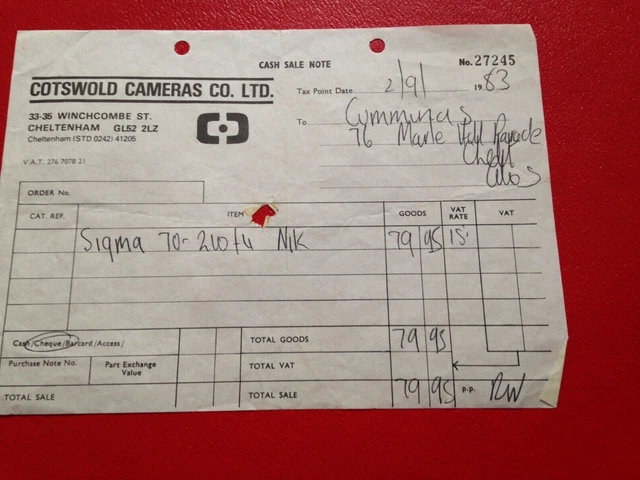 CASH SALE NOTE
No. 27245
COTSWOLD CAMERAS CO. LTD.
Tax Point Date 2/9/ 1983
33-35 WINCHCOMBE ST.
CHELTENHAM GL52 2LZ
Cheltenham (STD 0242) 41205
V.A.T. 276 7078 21
To Cummings
76 Marle Hill Parade
Chelt
Glos
ORDER No.
CAT. REF. ITEM GOODS VAT RATE VAT
Sigma 70-210 f4 Nik 79 95 15.
Cash/Cheque/Barcard/Access/ TOTAL GOODS 79 95
Purchase Note No. Part Exchange Value TOTAL VAT
TOTAL SALE TOTAL SALE 79 95 p.p. RW